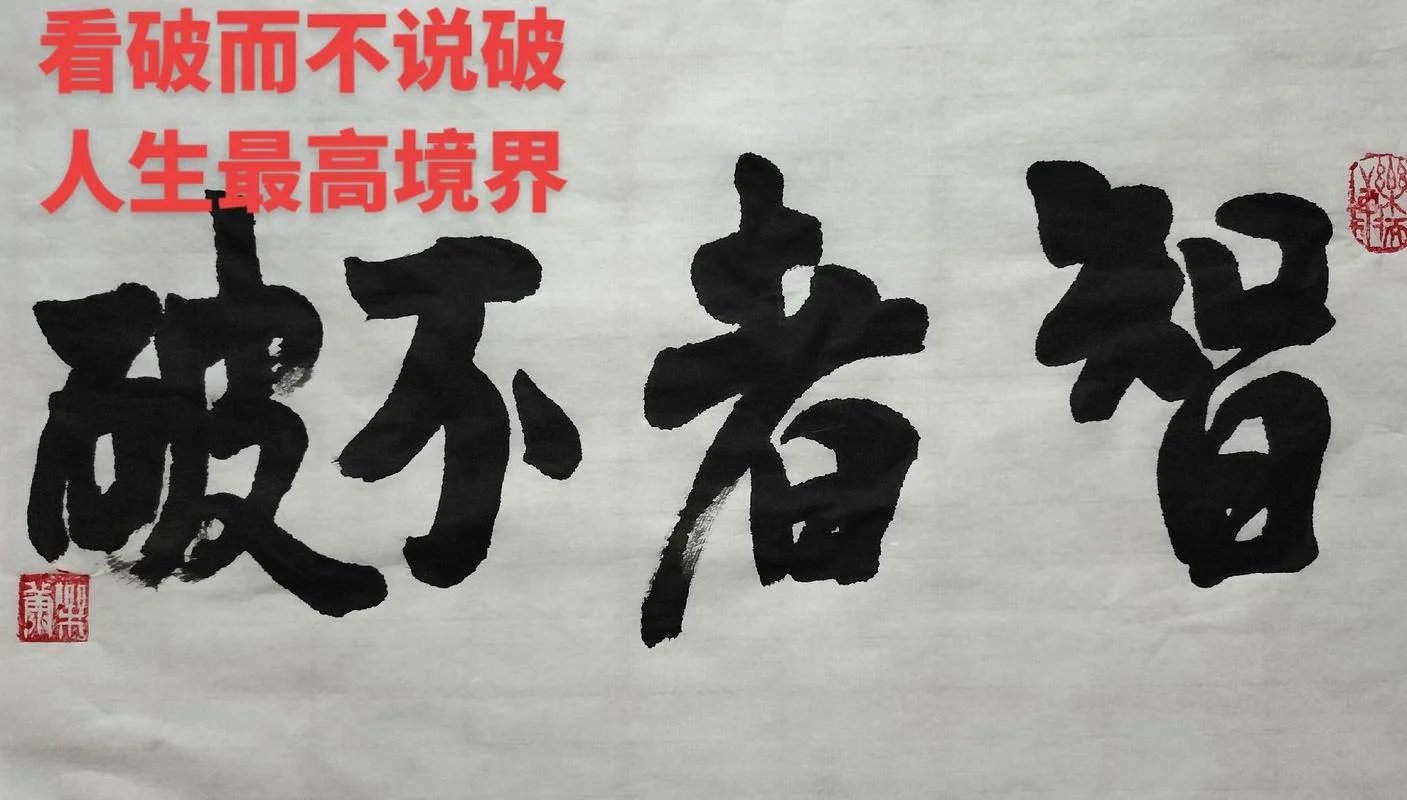 看破而不说破
人生最高境界
智者不破